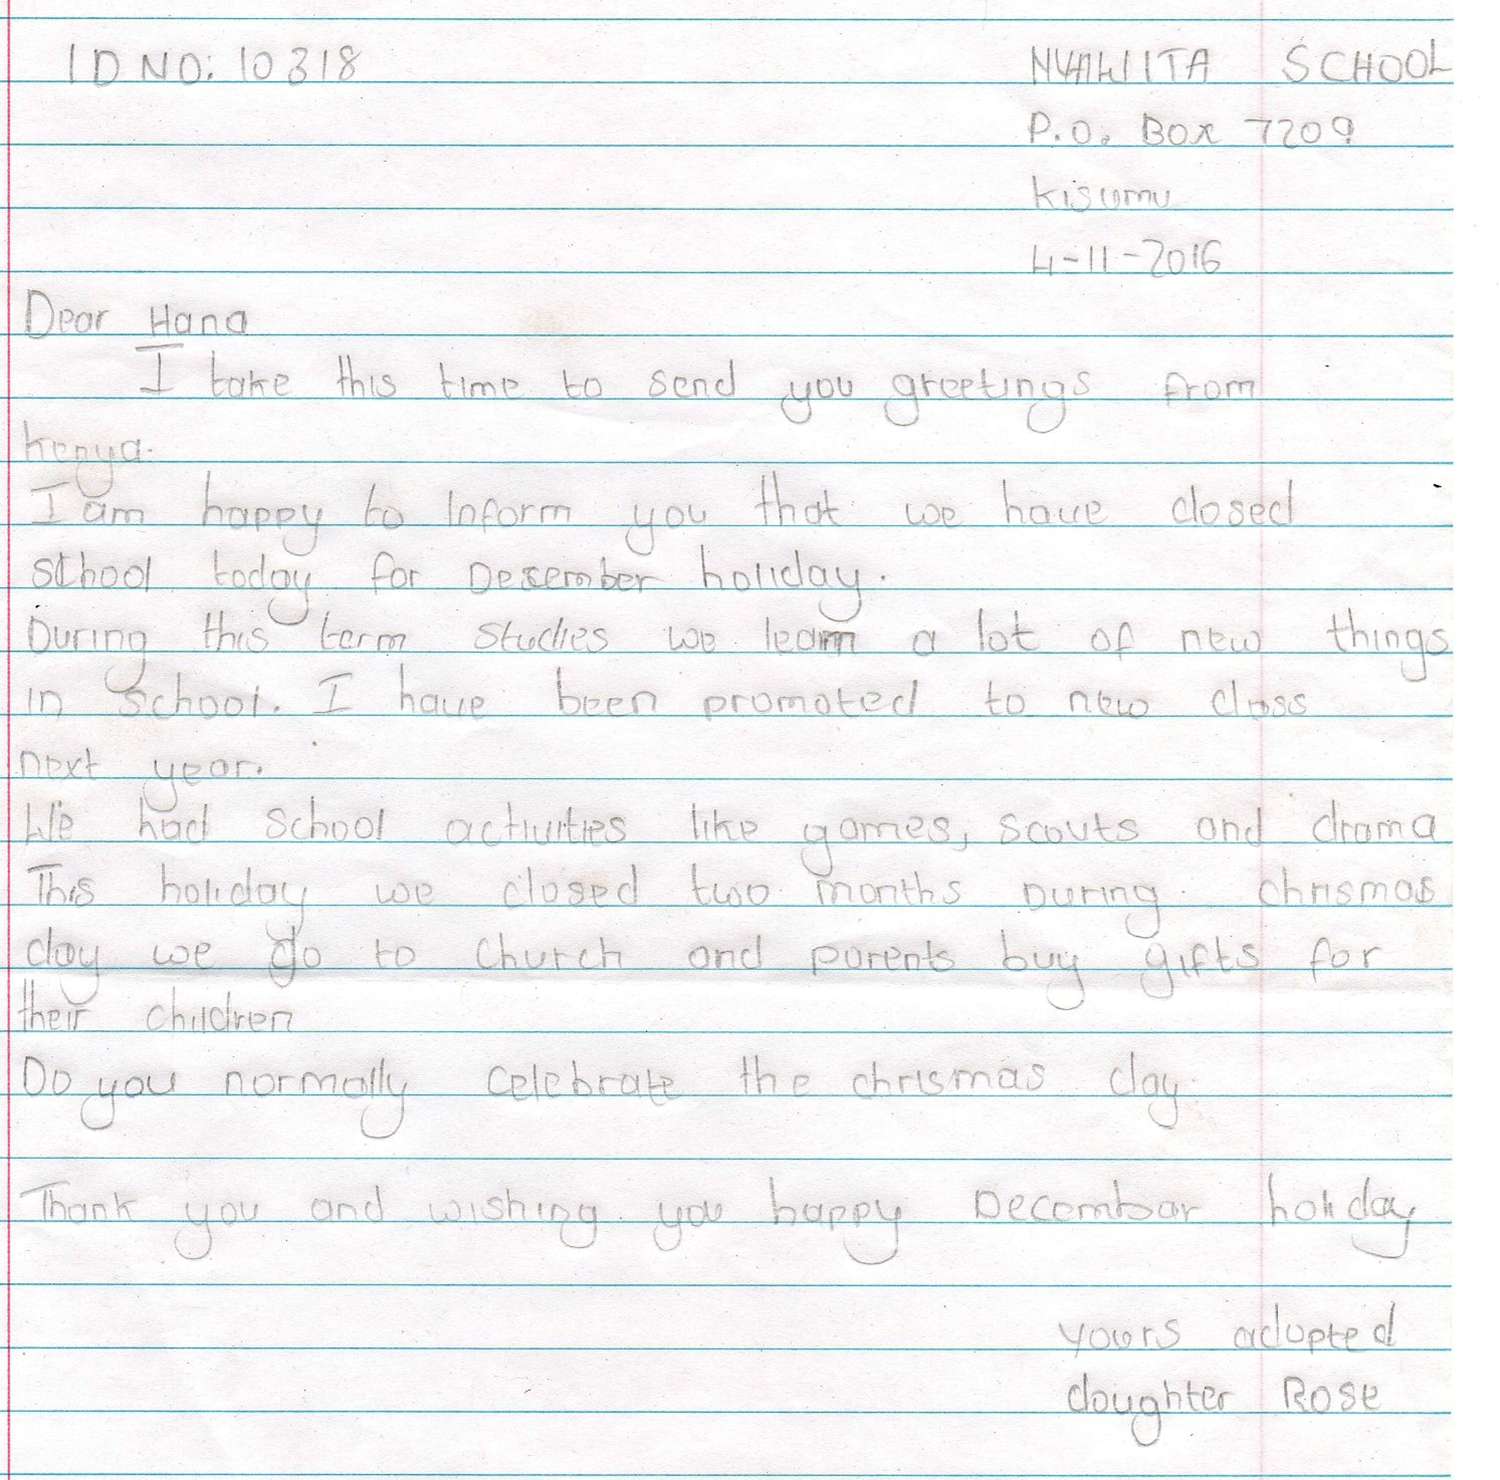 ID NO: 10318
SCHOOL
P.O. Box 7209
Kisumu
4-11-2016
Dear Hana
I take this time to send you greetings from
kenya.
I am happy to Inform you that we have closed
school today for Desember holiday.
During this term studies we learn a lot of new things
in school. I have been promoted to new class
next year.
We had school activities like games, scouts and drama
This holiday we closed two months During chrismas
day we go to church and parents buy gifts for
their children
Do you normally celebrate the chrismas day.
Thank you and wishing you happy holiday
yours adopted
daughter Rose